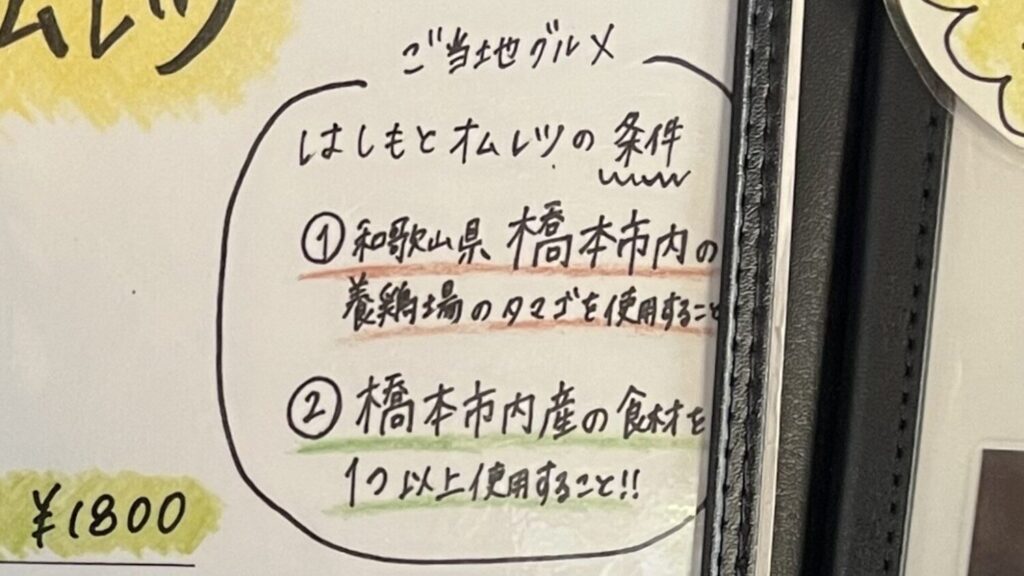 オムレツ
ご当地グルメ
はしもとオムレツの条件
① 和歌山県 橋本市内の
養鶏場のタマゴを使用すること
② 橋本市内産の食材を
1つ以上使用すること!!
¥1800